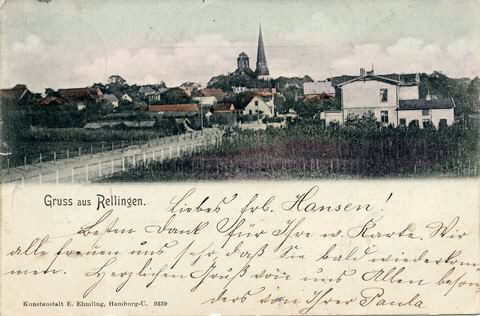 Gruss aus Rellingen.
Liebes frl. Hansen!
Besten Dank für Ihre w. Karte. Wir
alle freuen uns sehr, daß Sie bald wiederkom
men. Herzlichen Gruß von uns Allen beson
ders von Ihrer Paula
Kunstanstalt E. Ehmling, Hamburg-U. 9339